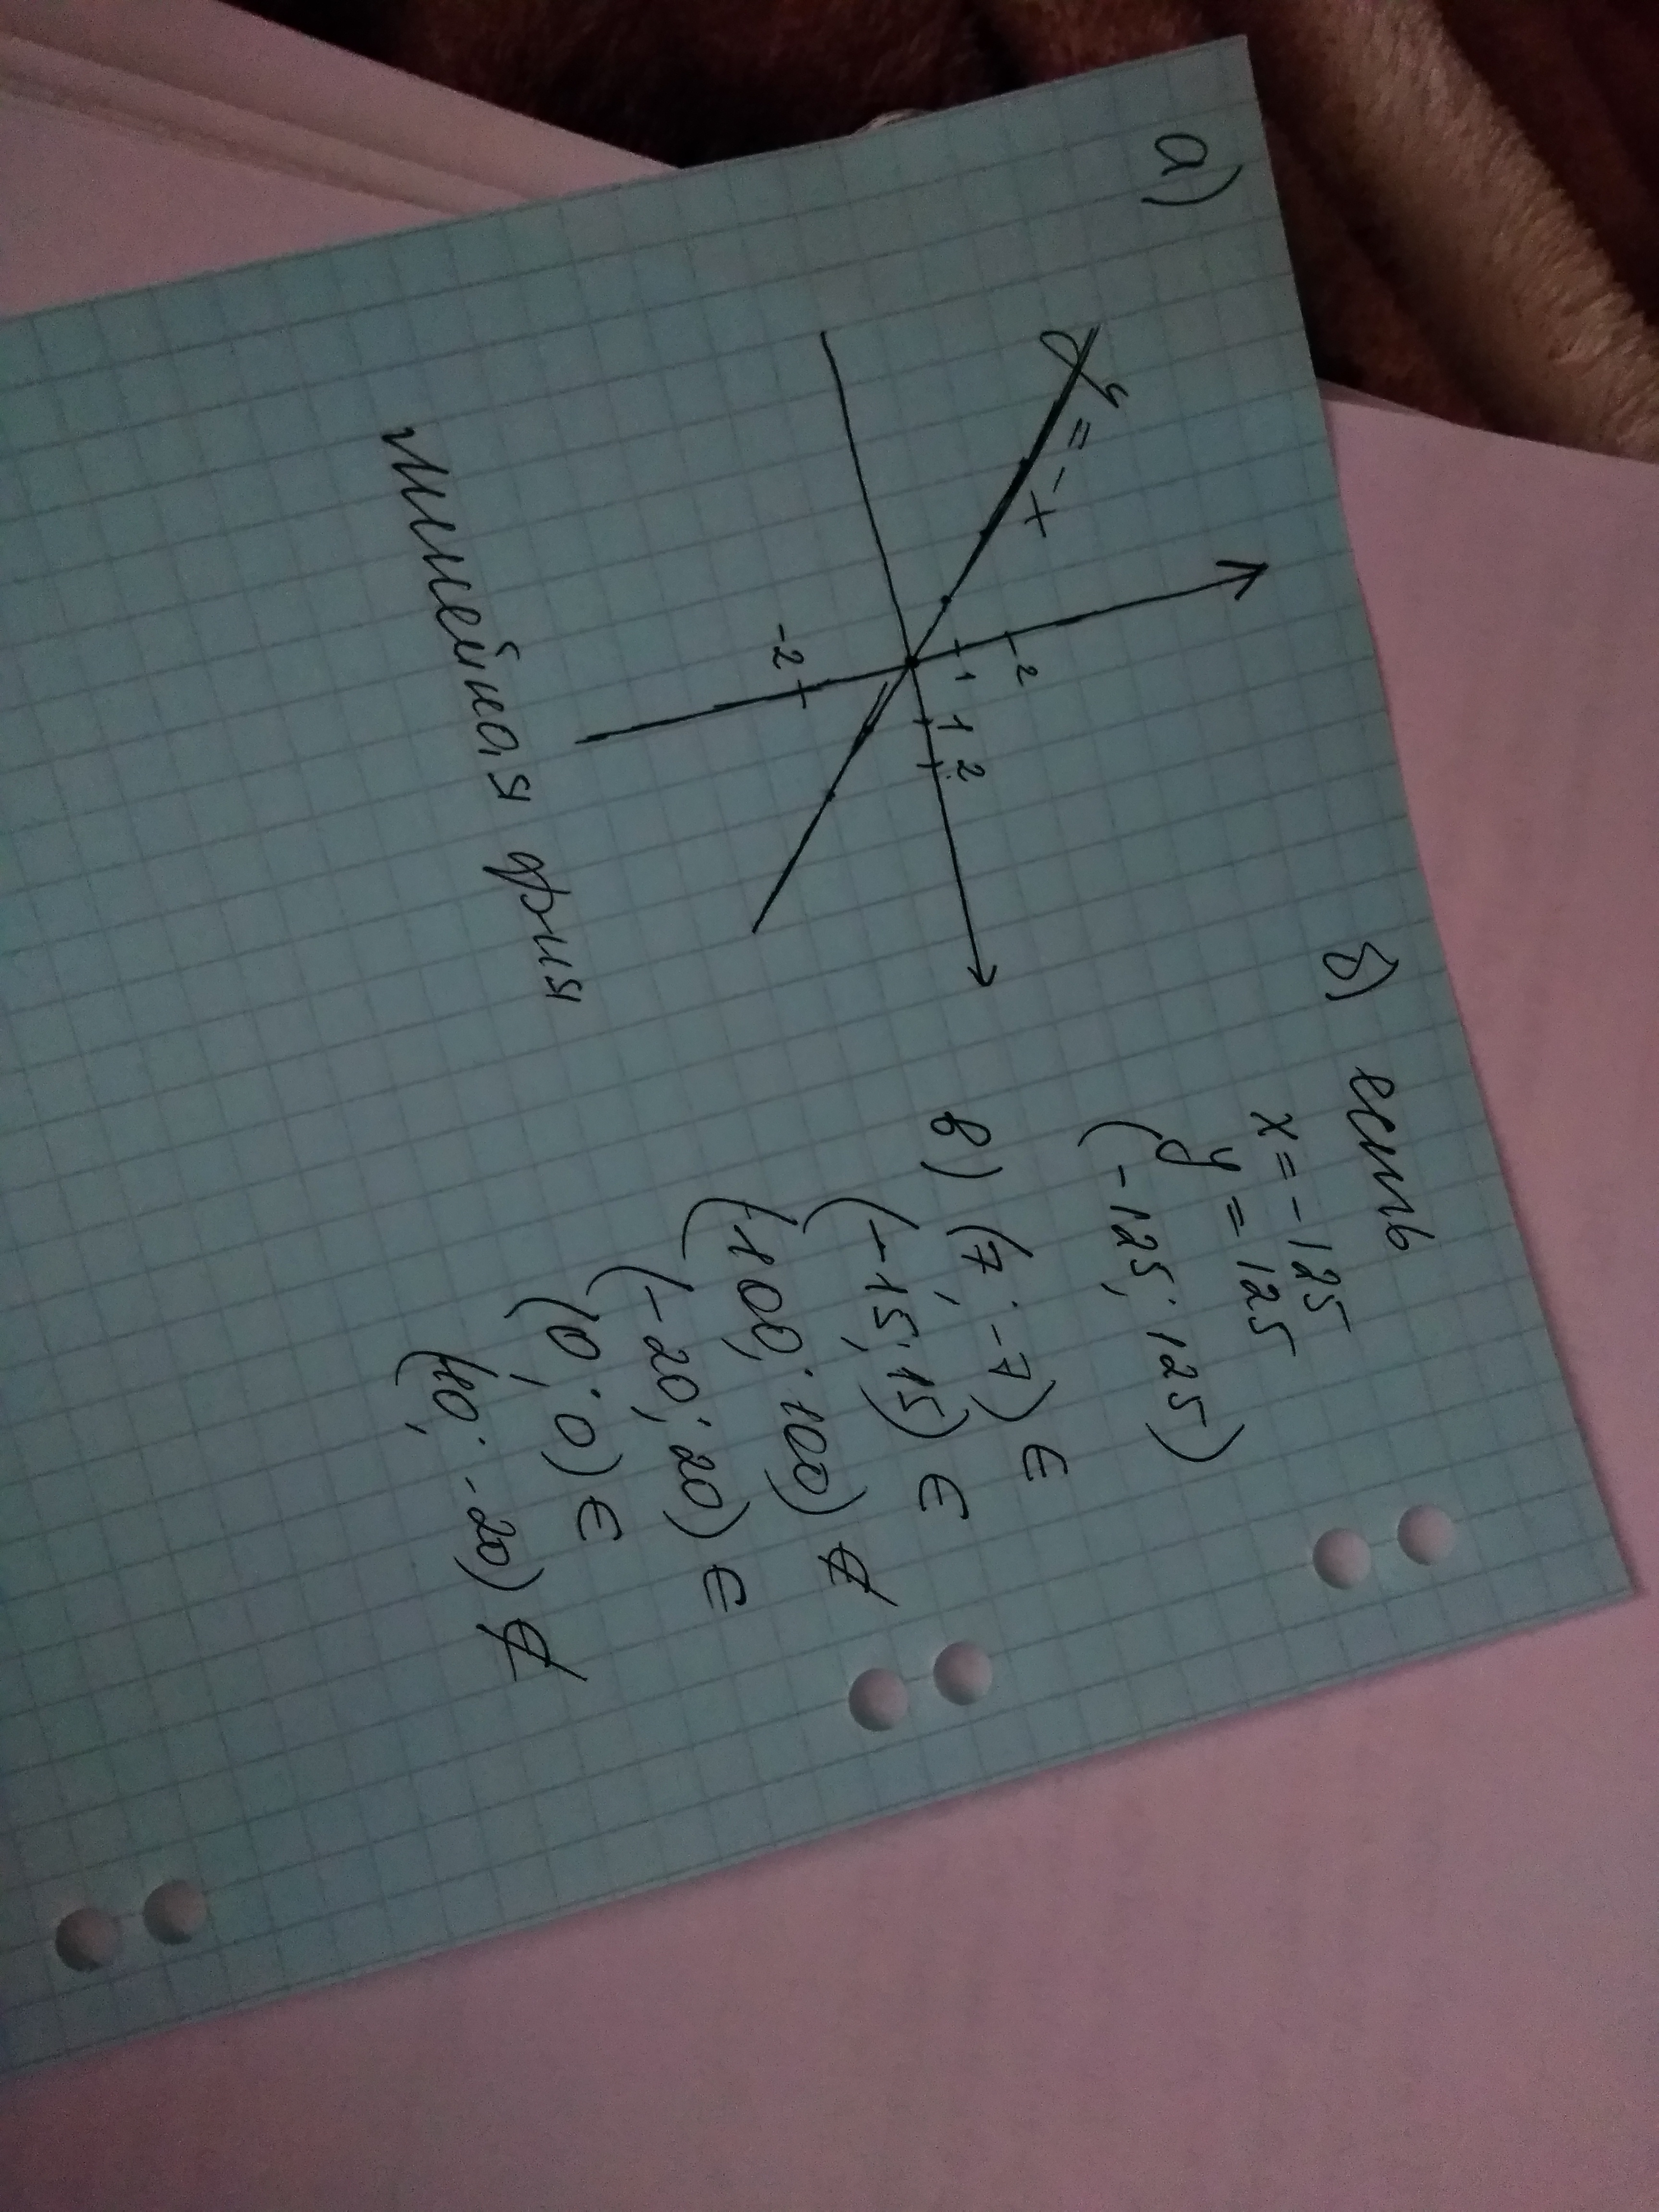 а)
y = -x
2
1
1 2
-2
линейная фция
б) есть
x = -125
y = 125
(-125; 125)
в) (7; -7) ∈
(-15; 15) ∈
(100; 100) ∉
(-20; 20) ∈
(0; 0) ∈
(10; -20) ∉